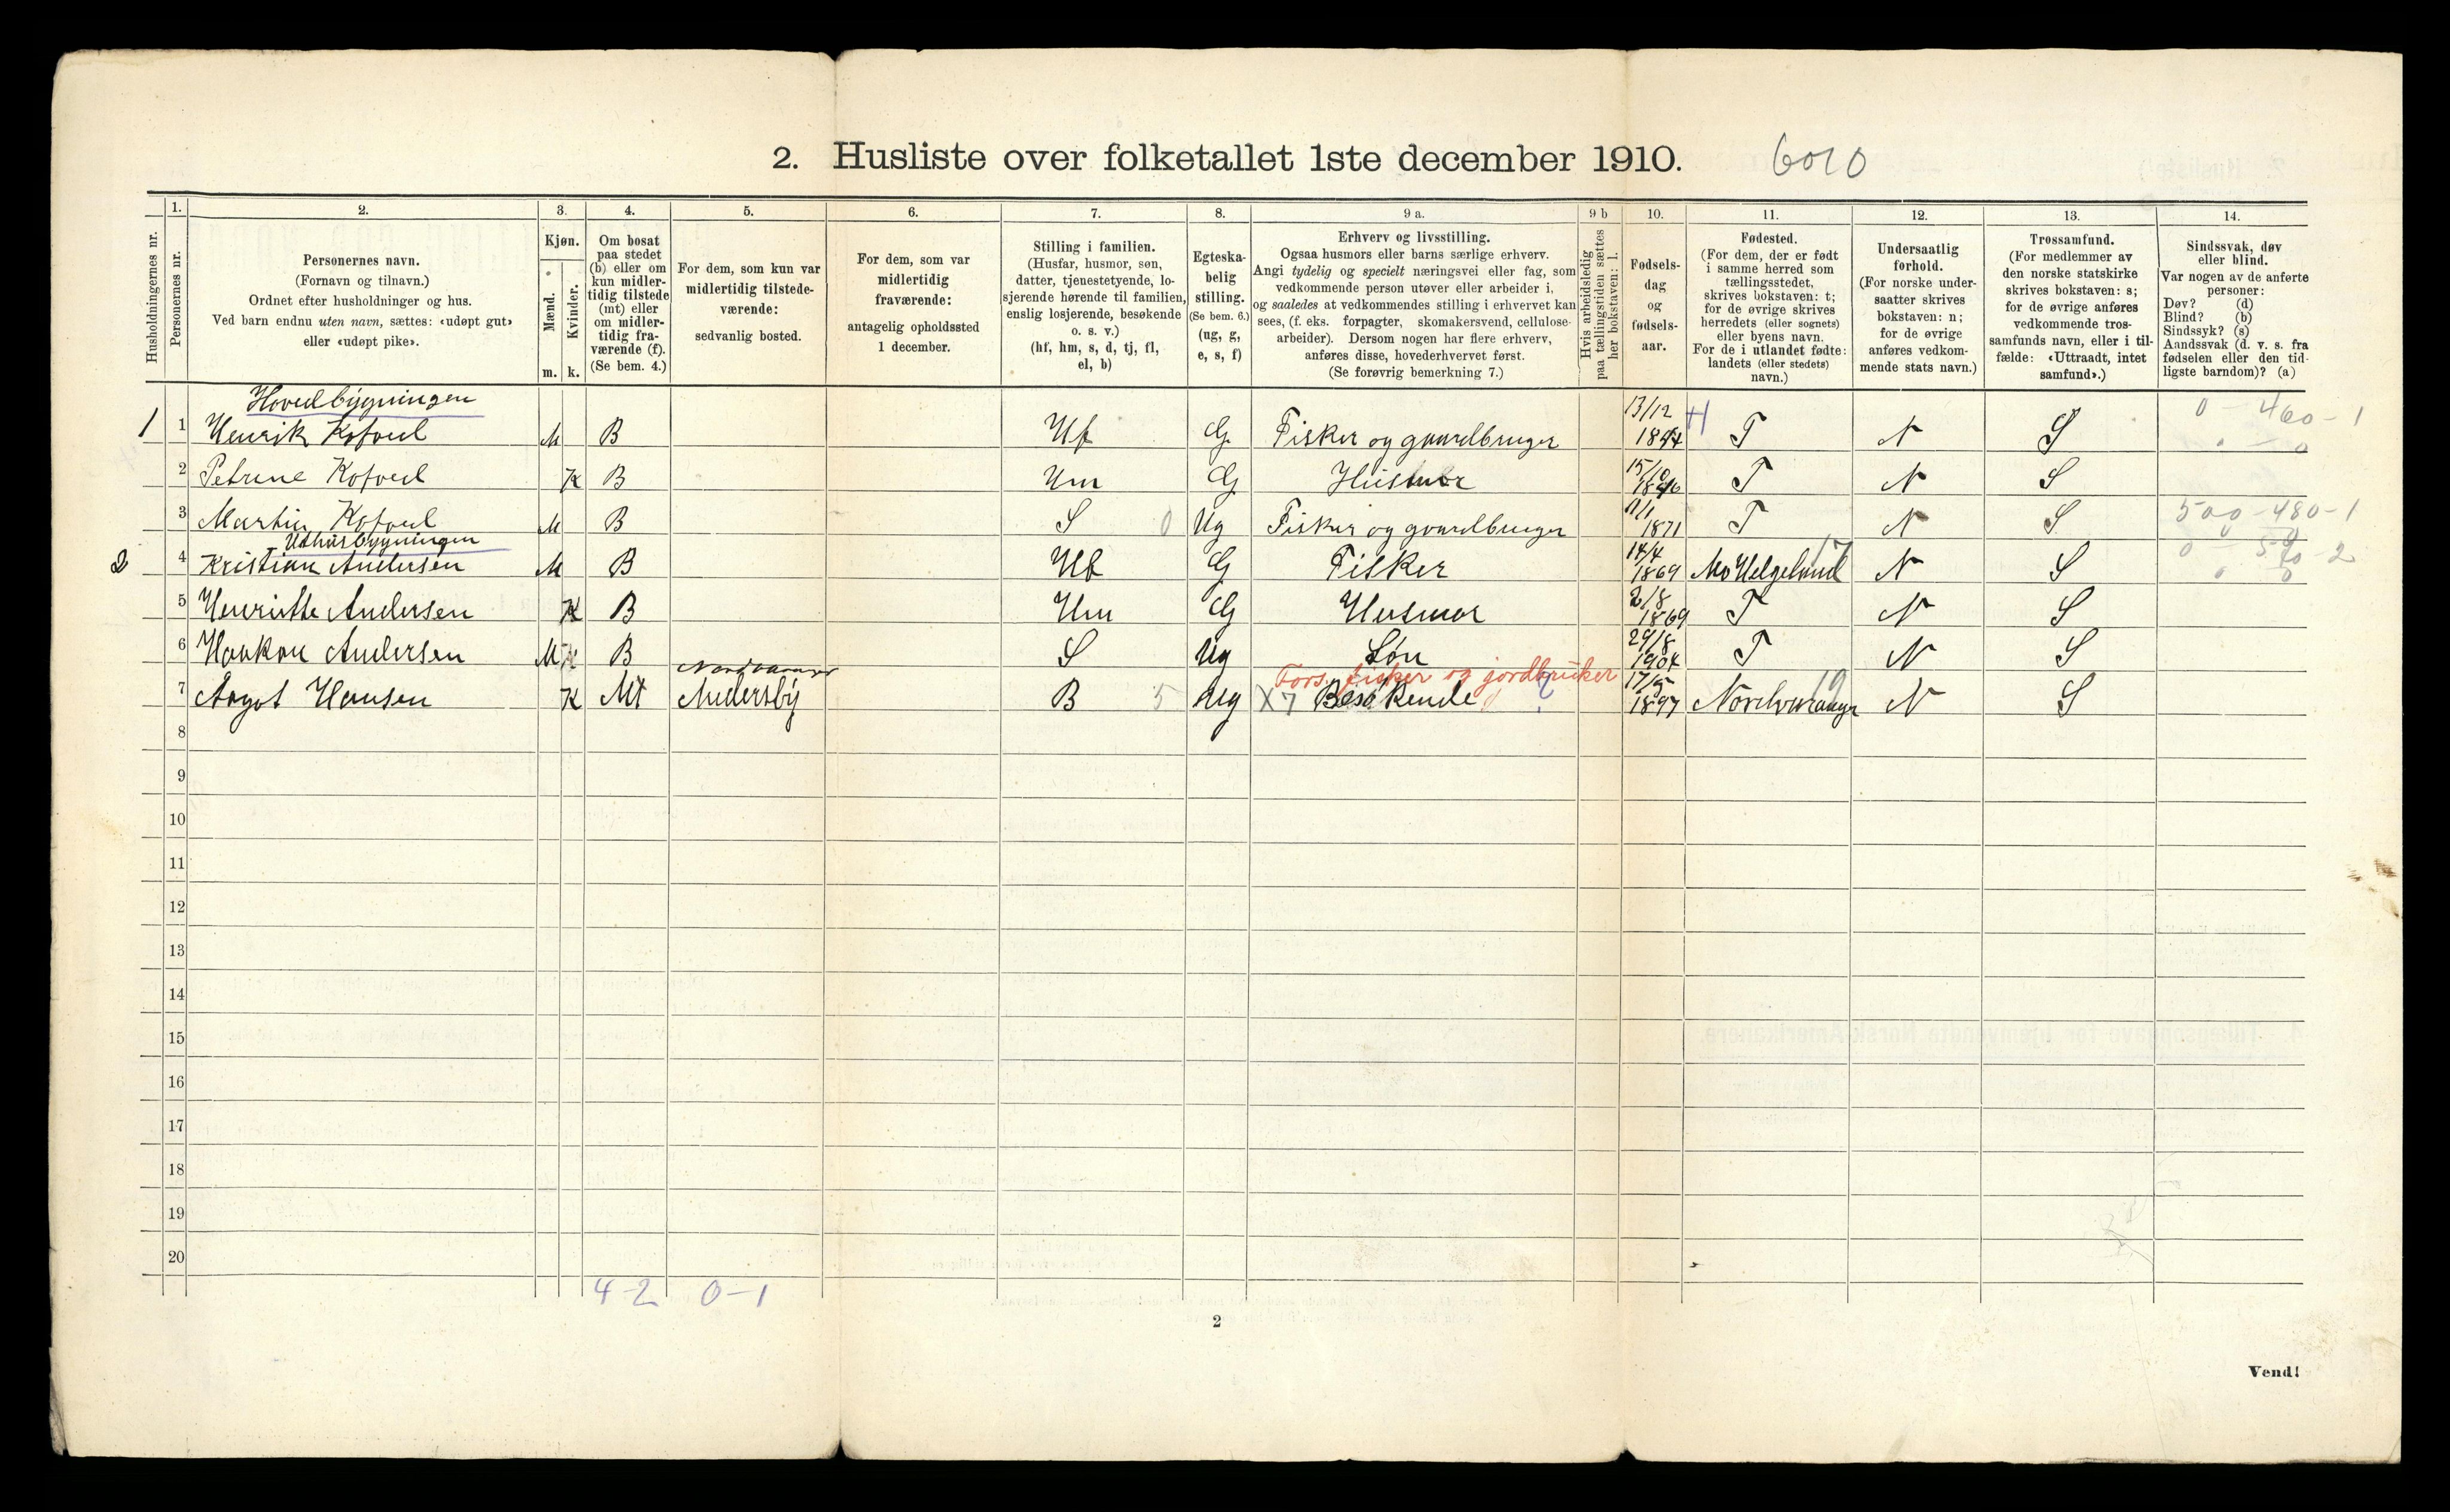 2. Husliste over folketallet 1ste december 1910. 6010
1. 2. 3. 4. 5. 6. 7. 8. 9 a. 9 b 10. 11. 12. 13. 14.
Husholdningernes nr.
Personernes nr.
Personernes navn.
(Fornavn og tilnavn.)
Ordnet efter husholdninger og hus.
Ved barn endnu uten navn, sættes: «udøpt gut»
eller «udøpt pike».
Kjøn.
Mænd.
Kvinder.
m. k.
Om bosat
paa stedet
(b) eller om
kun midler-
tidig tilstede
(mt) eller
om midler-
tidig fra-
værende (f).
(Se bem. 4.)
For dem, som kun var
midlertidig tilstede-
værende:
sedvanlig bosted.
For dem, som var
midlertidig
fraværende:
antagelig opholdssted
1 december.
Stilling i familien.
(Husfar, husmor, søn,
datter, tjenestetyende, lo-
sjerende hørende til familien,
enslig losjerende, besøkende
o. s. v.)
(hf, hm, s, d, tj, fl,
el, b)
Egteska-
belig
stilling.
(Se bem. 6.)
(ug, g,
e, s, f)
Erhverv og livsstilling.
Ogsaa husmors eller barns særlige erhverv.
Angi tydelig og specielt næringsvei eller fag, som
vedkommende person utøver eller arbeider i,
og saaledes at vedkommendes stilling i erhvervet kan
sees, (f. eks. forpagter, skomakersvend, cellulose-
arbeider). Dersom nogen har flere erhverv,
anføres disse, hovederhvervet først.
(Se forøvrig bemerkning 7.)
Hvis arbeidsledig
paa tællingstiden sættes
her bokstaven: l.
Fødsels-
dag
og
fødsels-
aar.
Fødested.
(For dem, der er født
i samme herred som
tællingsstedet,
skrives bokstaven: t;
for de øvrige skrives
herredets (eller sognets)
eller byens navn.
For de i utlandet fødte:
landets (eller stedets)
navn.)
Undersaatlig
forhold.
(For norske under-
saatter skrives
bokstaven: n;
for de øvrige
anføres vedkom-
mende stats navn.)
Trossamfund.
(For medlemmer av
den norske statskirke
skrives bokstaven: s;
for de øvrige anføres
vedkommende tros-
samfunds navn, eller i til-
fælde: «Uttraadt, intet
samfund».)
Sindssvak, døv
eller blind.
Var nogen av de anførte
personer:
Døv? (d)
Blind? (b)
Sindssyk? (s)
Aandssvak (d. v. s. fra
fødselen eller den tid-
ligste barndom)? (a)
Hovedbygningen
1 1 Henrik Kofoed M B Hf G Fisker og gaardbruger 13/12 1844 T N S 0-460-1
2 Petrine Kofoed K B Hm G Husmor 15/10 1846 T N S
3 Martin Kofoed M B S 0 Ug Fisker og gaardbruger 11/1 1871 T N S 500-480-1
Uthusbygningen
2 4 Kristian Andersen M B Hf G Fisker 14/4 1869 Mo Helgeland N S
5 Henriette Andersen K B Hm G Husmor 2/8 1869 T N S
6 Haakon Andersen M B S Ug Søn 29/8 1904 T N S
Fors. fisker og jordbruker
7 Aagot Hansen K Mt Andersby B 5 Ug X7 Besøkende ? 17/5 1897 Nordvaranger 19 N S
8
9
10
11
12
13
14
15
16
17
18
19
20
4-2 0-1
2
Vend!